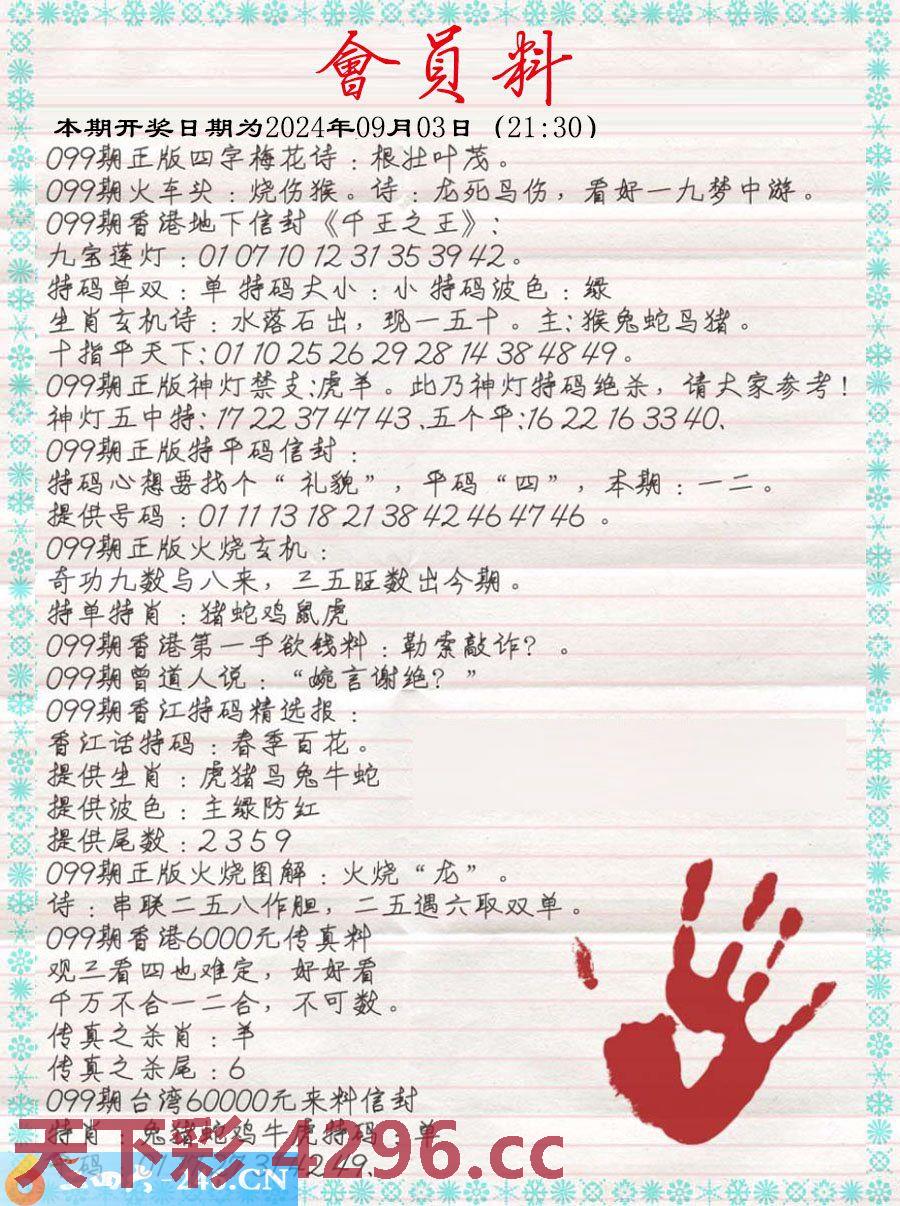 會員料
本期开奖日期为2024年09月03日（21:30）
099期正版四字梅花诗：根壮叶茂。
099期火车头：烧伤猴。诗：龙死鸟伤，看好一九梦中游。
099期香港地下信封《千王之王》：
九宝莲灯：01 07 10 12 31 35 39 42。
特码单双：单 特码大小：小 特码波色：绿
生肖玄机诗：水落石出，现一五十。主：猴兔蛇鸟猪。
十指平天下：01 10 25 26 29 28 14 38 48 49。
099期正版神灯禁支：虎羊。此乃神灯特码绝杀，请大家参考！
神灯五中特：17 22 37 47 43、五个平：16 22 16 33 40、
099期正版特平码信封：
特码心想要找个“礼貌”，平码“四”，本期：一二。
提供号码：01 11 13 18 21 38 42 46 47 46 。
099期正版火烧玄机：
奇功九数与八来，三五旺数出今期。
特单特肖：猪蛇鸡鼠虎
099期香港第一手欲钱料：勒索敲诈？。
099期曾道人说：“婉言谢绝？”
099期香江特码精选报：
香江话特码：春季百花。
提供生肖：虎猪鸟兔牛蛇
提供波色：主绿防红
提供尾数：2 3 5 9
099期正版火烧图解：火烧“龙”。
诗：串联二五八作胆，二五遇六取双单。
099期香港6000元传真料
观三看四也难定，好好看
千万不合一二合，不可数。
传真之杀肖：羊
传真之杀尾：6
099期台湾60000元来料信封
特肖：兔猪蛇鸡牛虎特码：单
天下彩 4296.cc
42 49、
246.CN